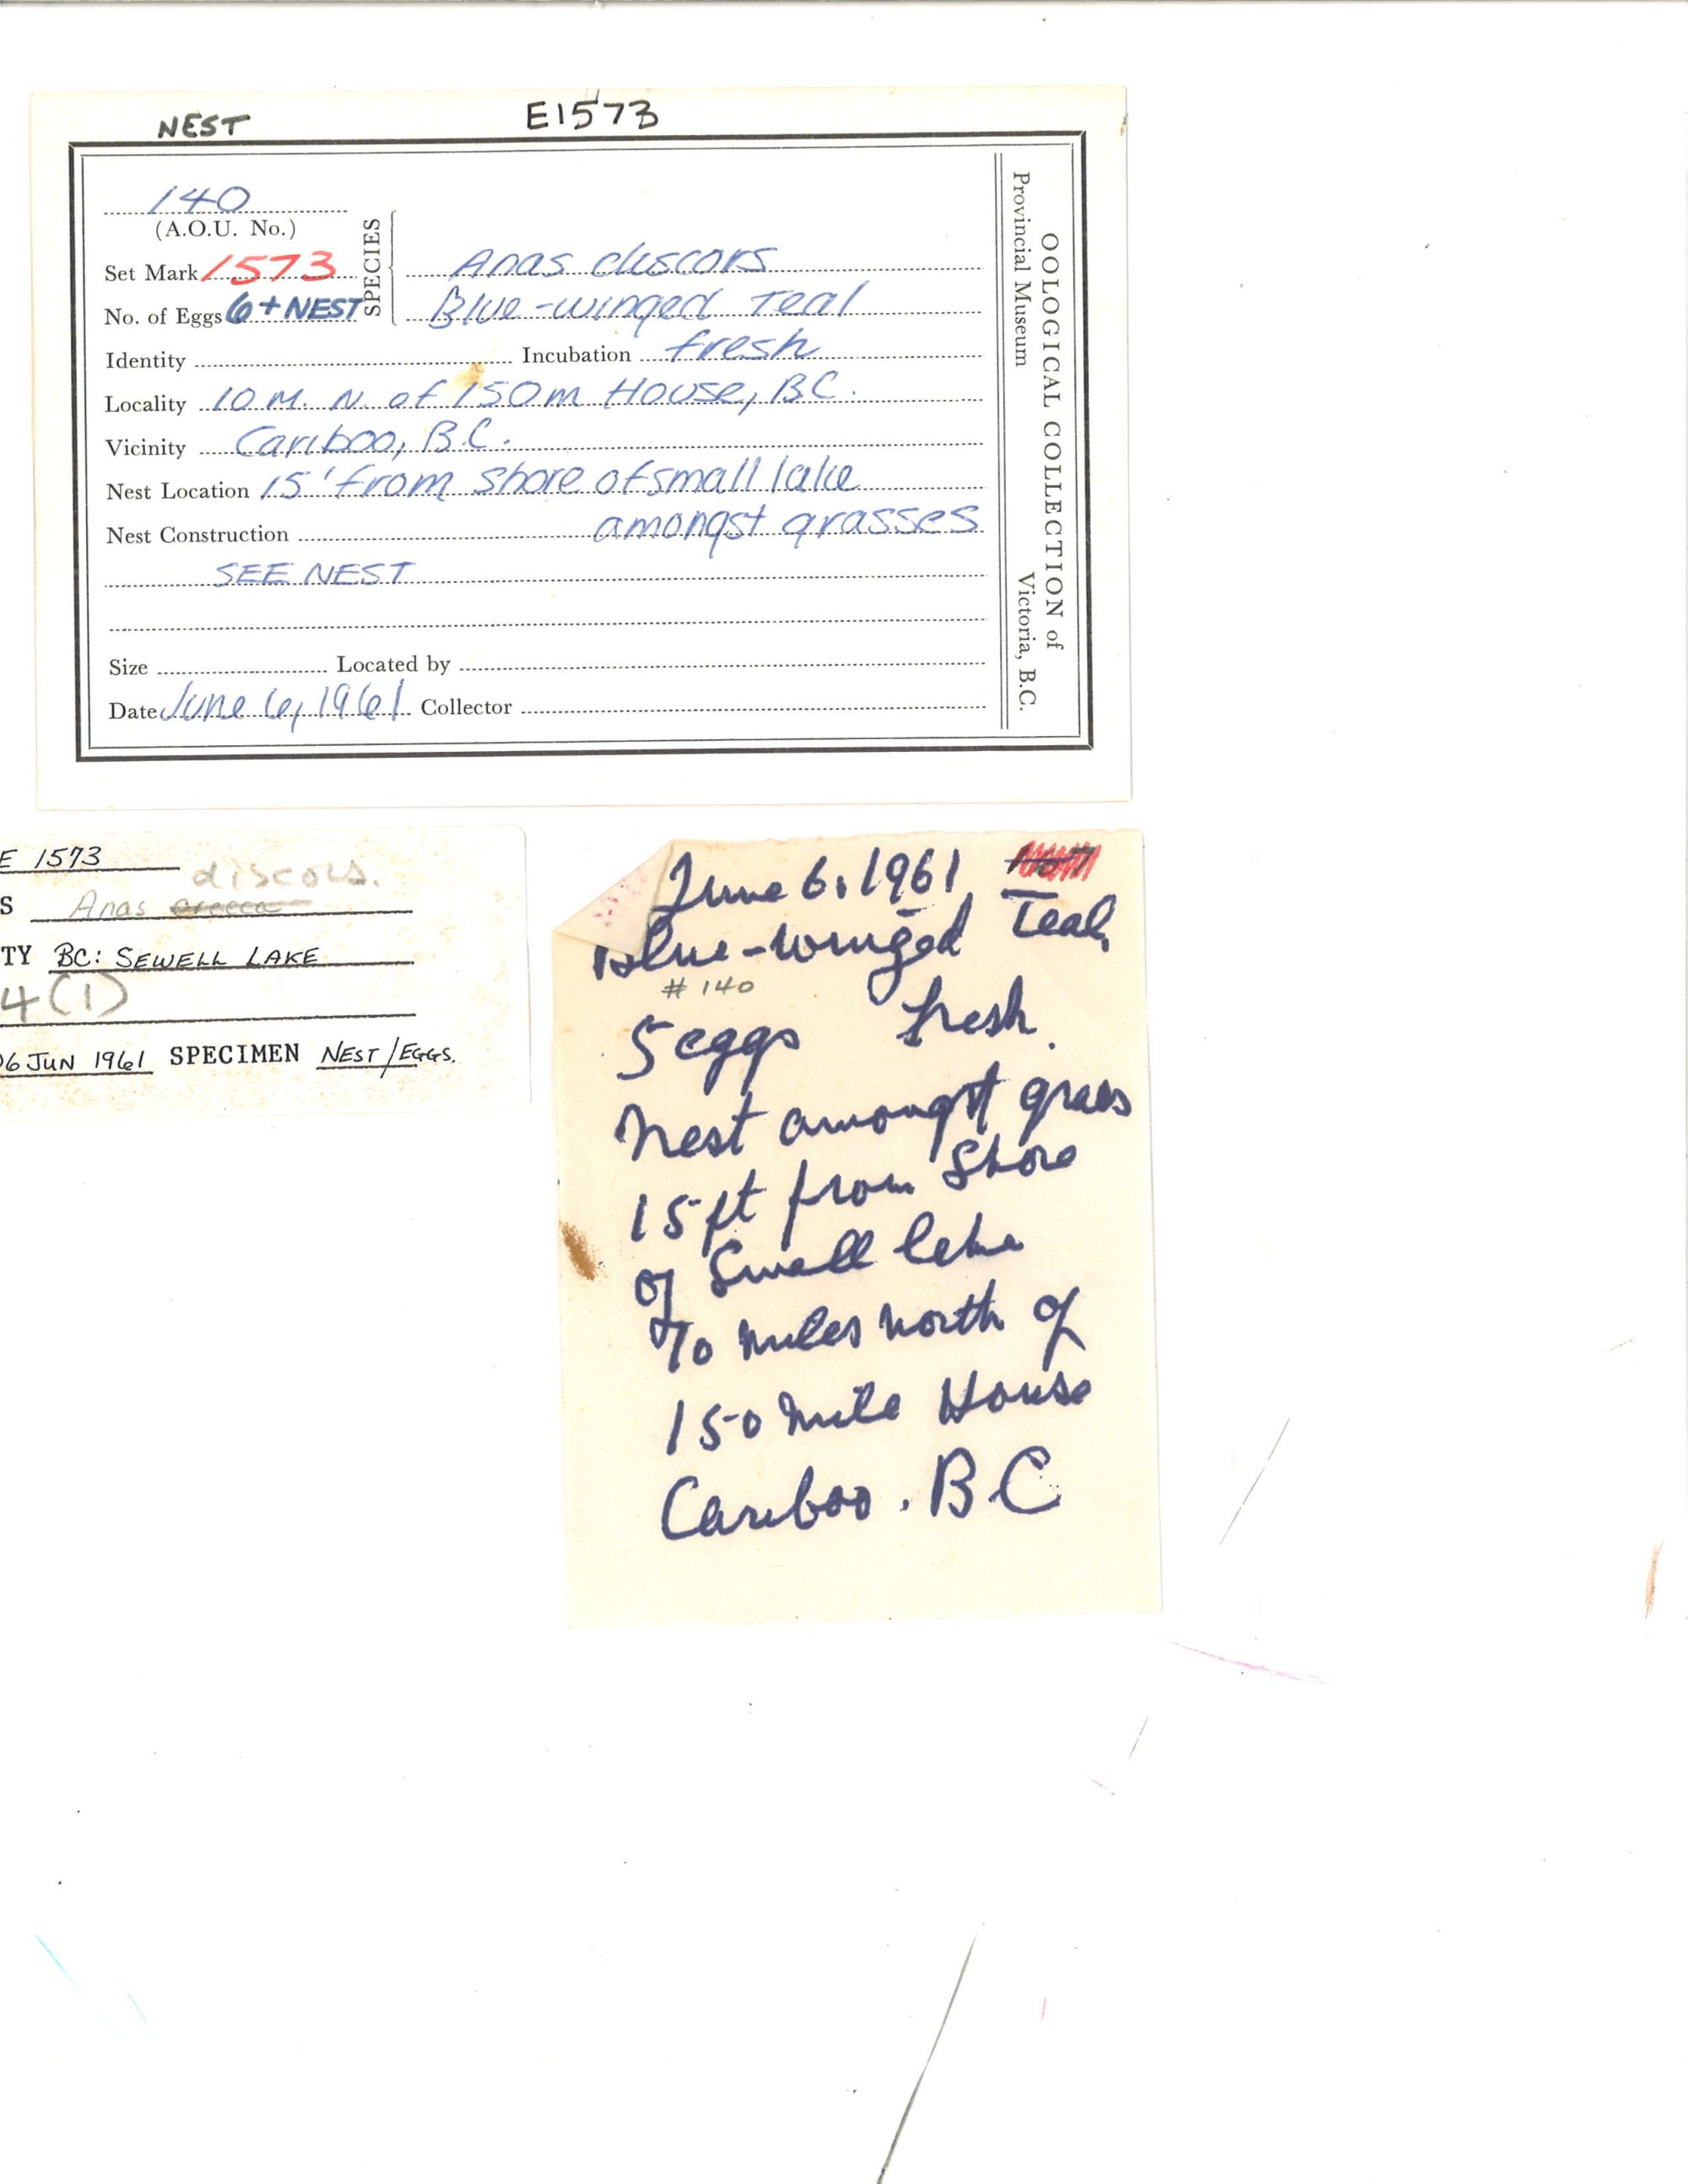 NEST E1573
140
(A.O.U. No.)
SPECIES
Set Mark 1573 Anas discors
No. of Eggs 6 + NEST Blue-winged Teal
Identity Incubation fresh
Locality 10 M. N. of 150 m House, BC.
Vicinity Cariboo, B.C.
Nest Location 15' from shore of small lake
Nest Construction amongst grasses
SEE NEST
Size Located by
Date June 6, 1961 Collector
OOLOGICAL COLLECTION of
Provincial Museum Victoria, B.C.
E 1573
discors.
S Anas
TY BC: SEWELL LAKE
4 (1)
06 JUN 1961 SPECIMEN NEST/EGGS.
June 6, 1961
Blue-winged Teal,
# 140
5 eggs fresh.
Nest amongst grass
15 ft from shore
of small lake
10 miles north of
150 mile House
Cariboo. B.C